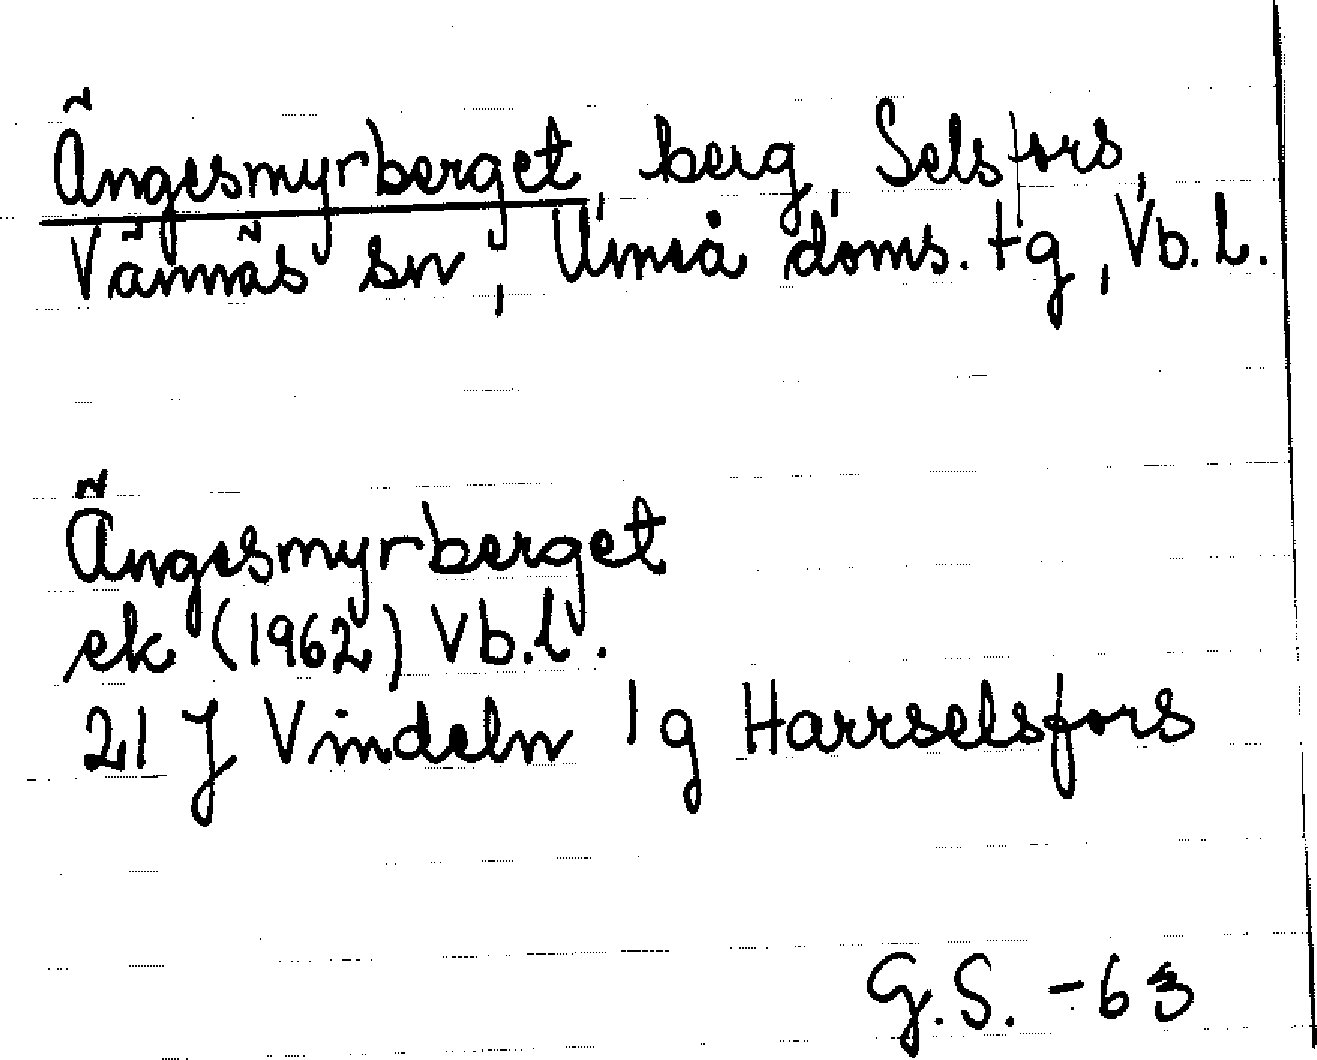 Ängesmyrberget, berg, Selsfors,
Vännäs sn, Umeå doms. tg, Vb. L.
Ängesmyrberget
ek (1962) Vb.l.
21 J Vindeln 1g Harrselsfors
G.S. -63